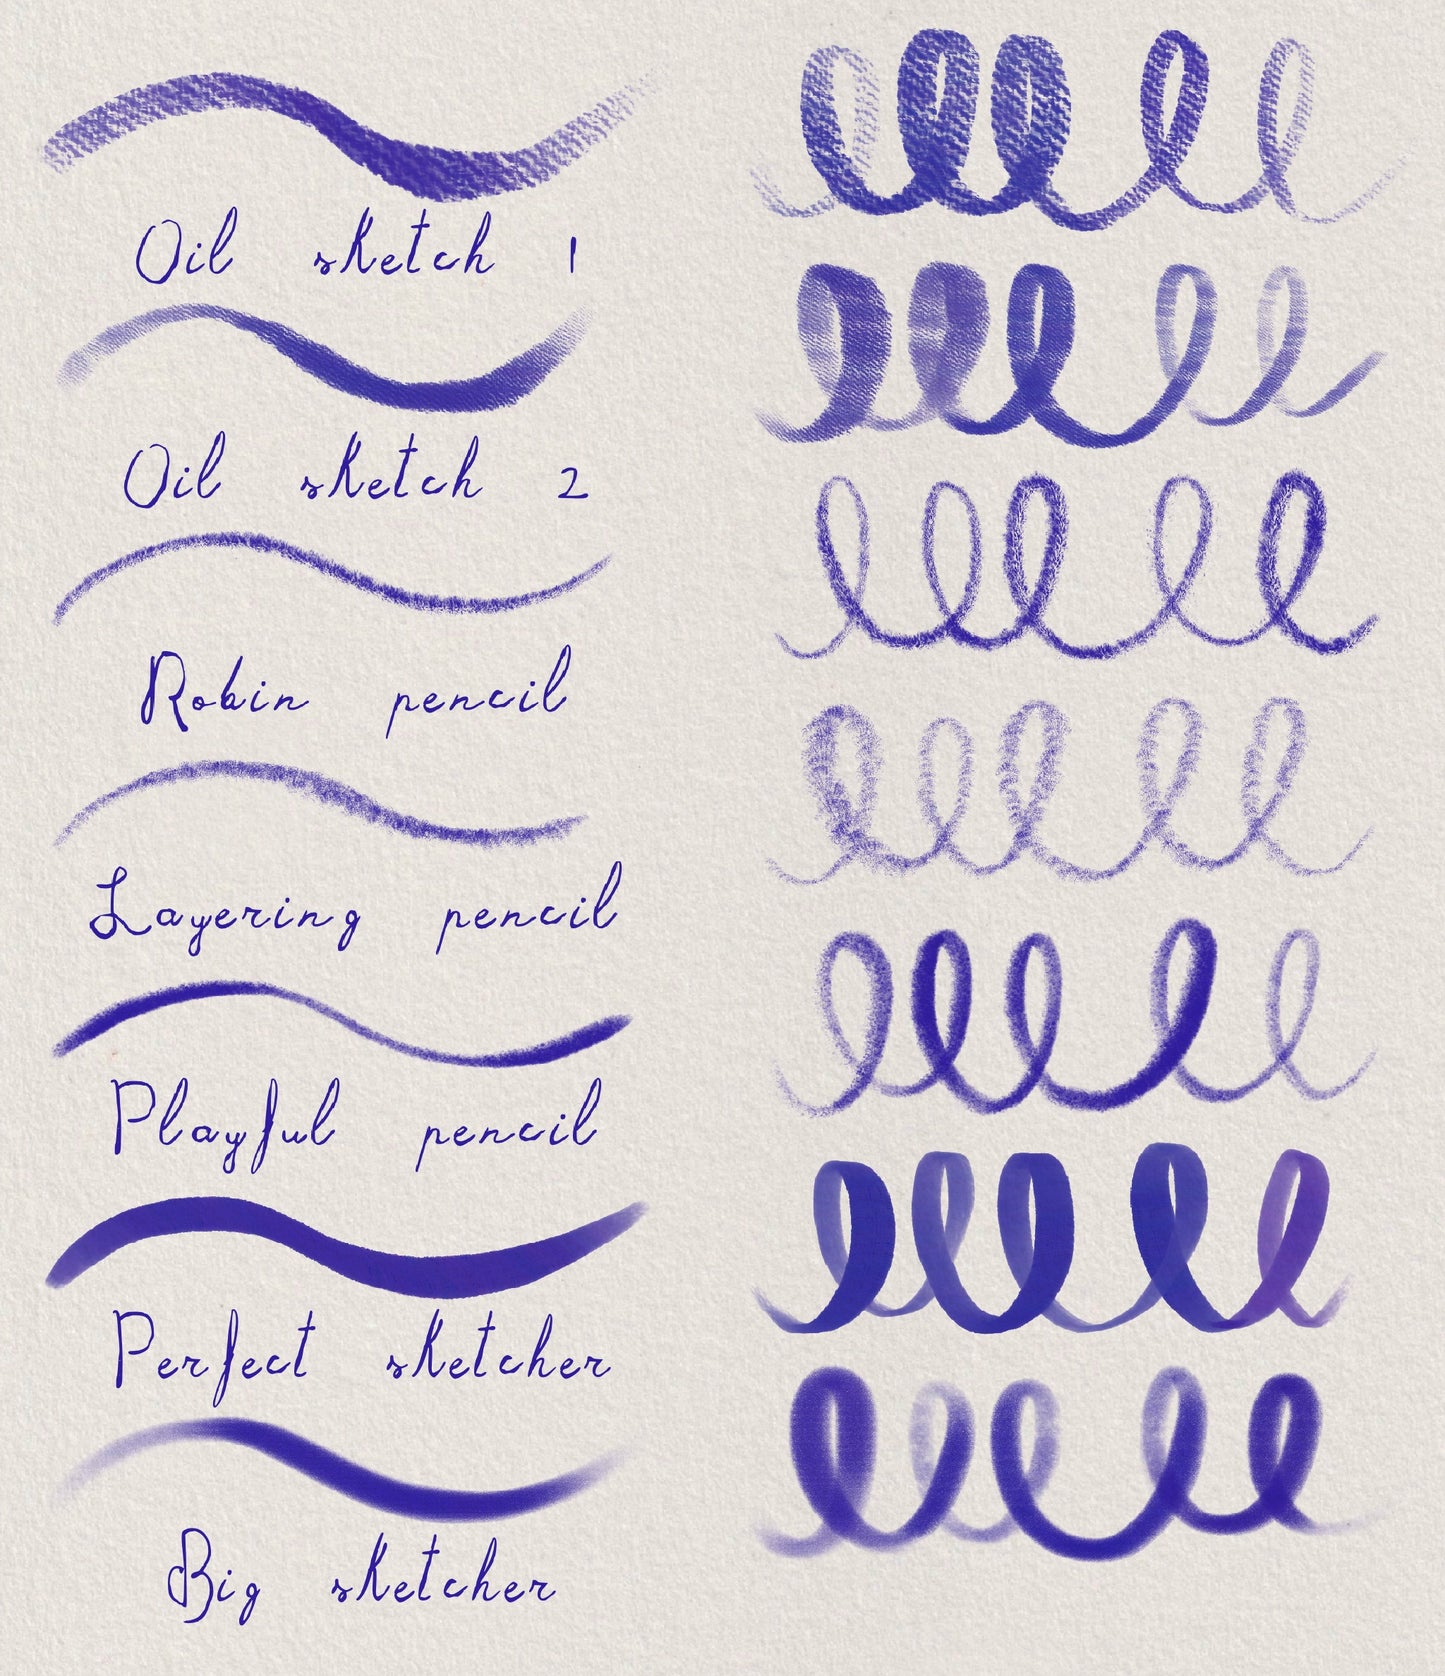 Oil sketch 1
Oil sketch 2
Robin pencil
Layering pencil
Playful pencil
Perfect sketcher
Big sketcher